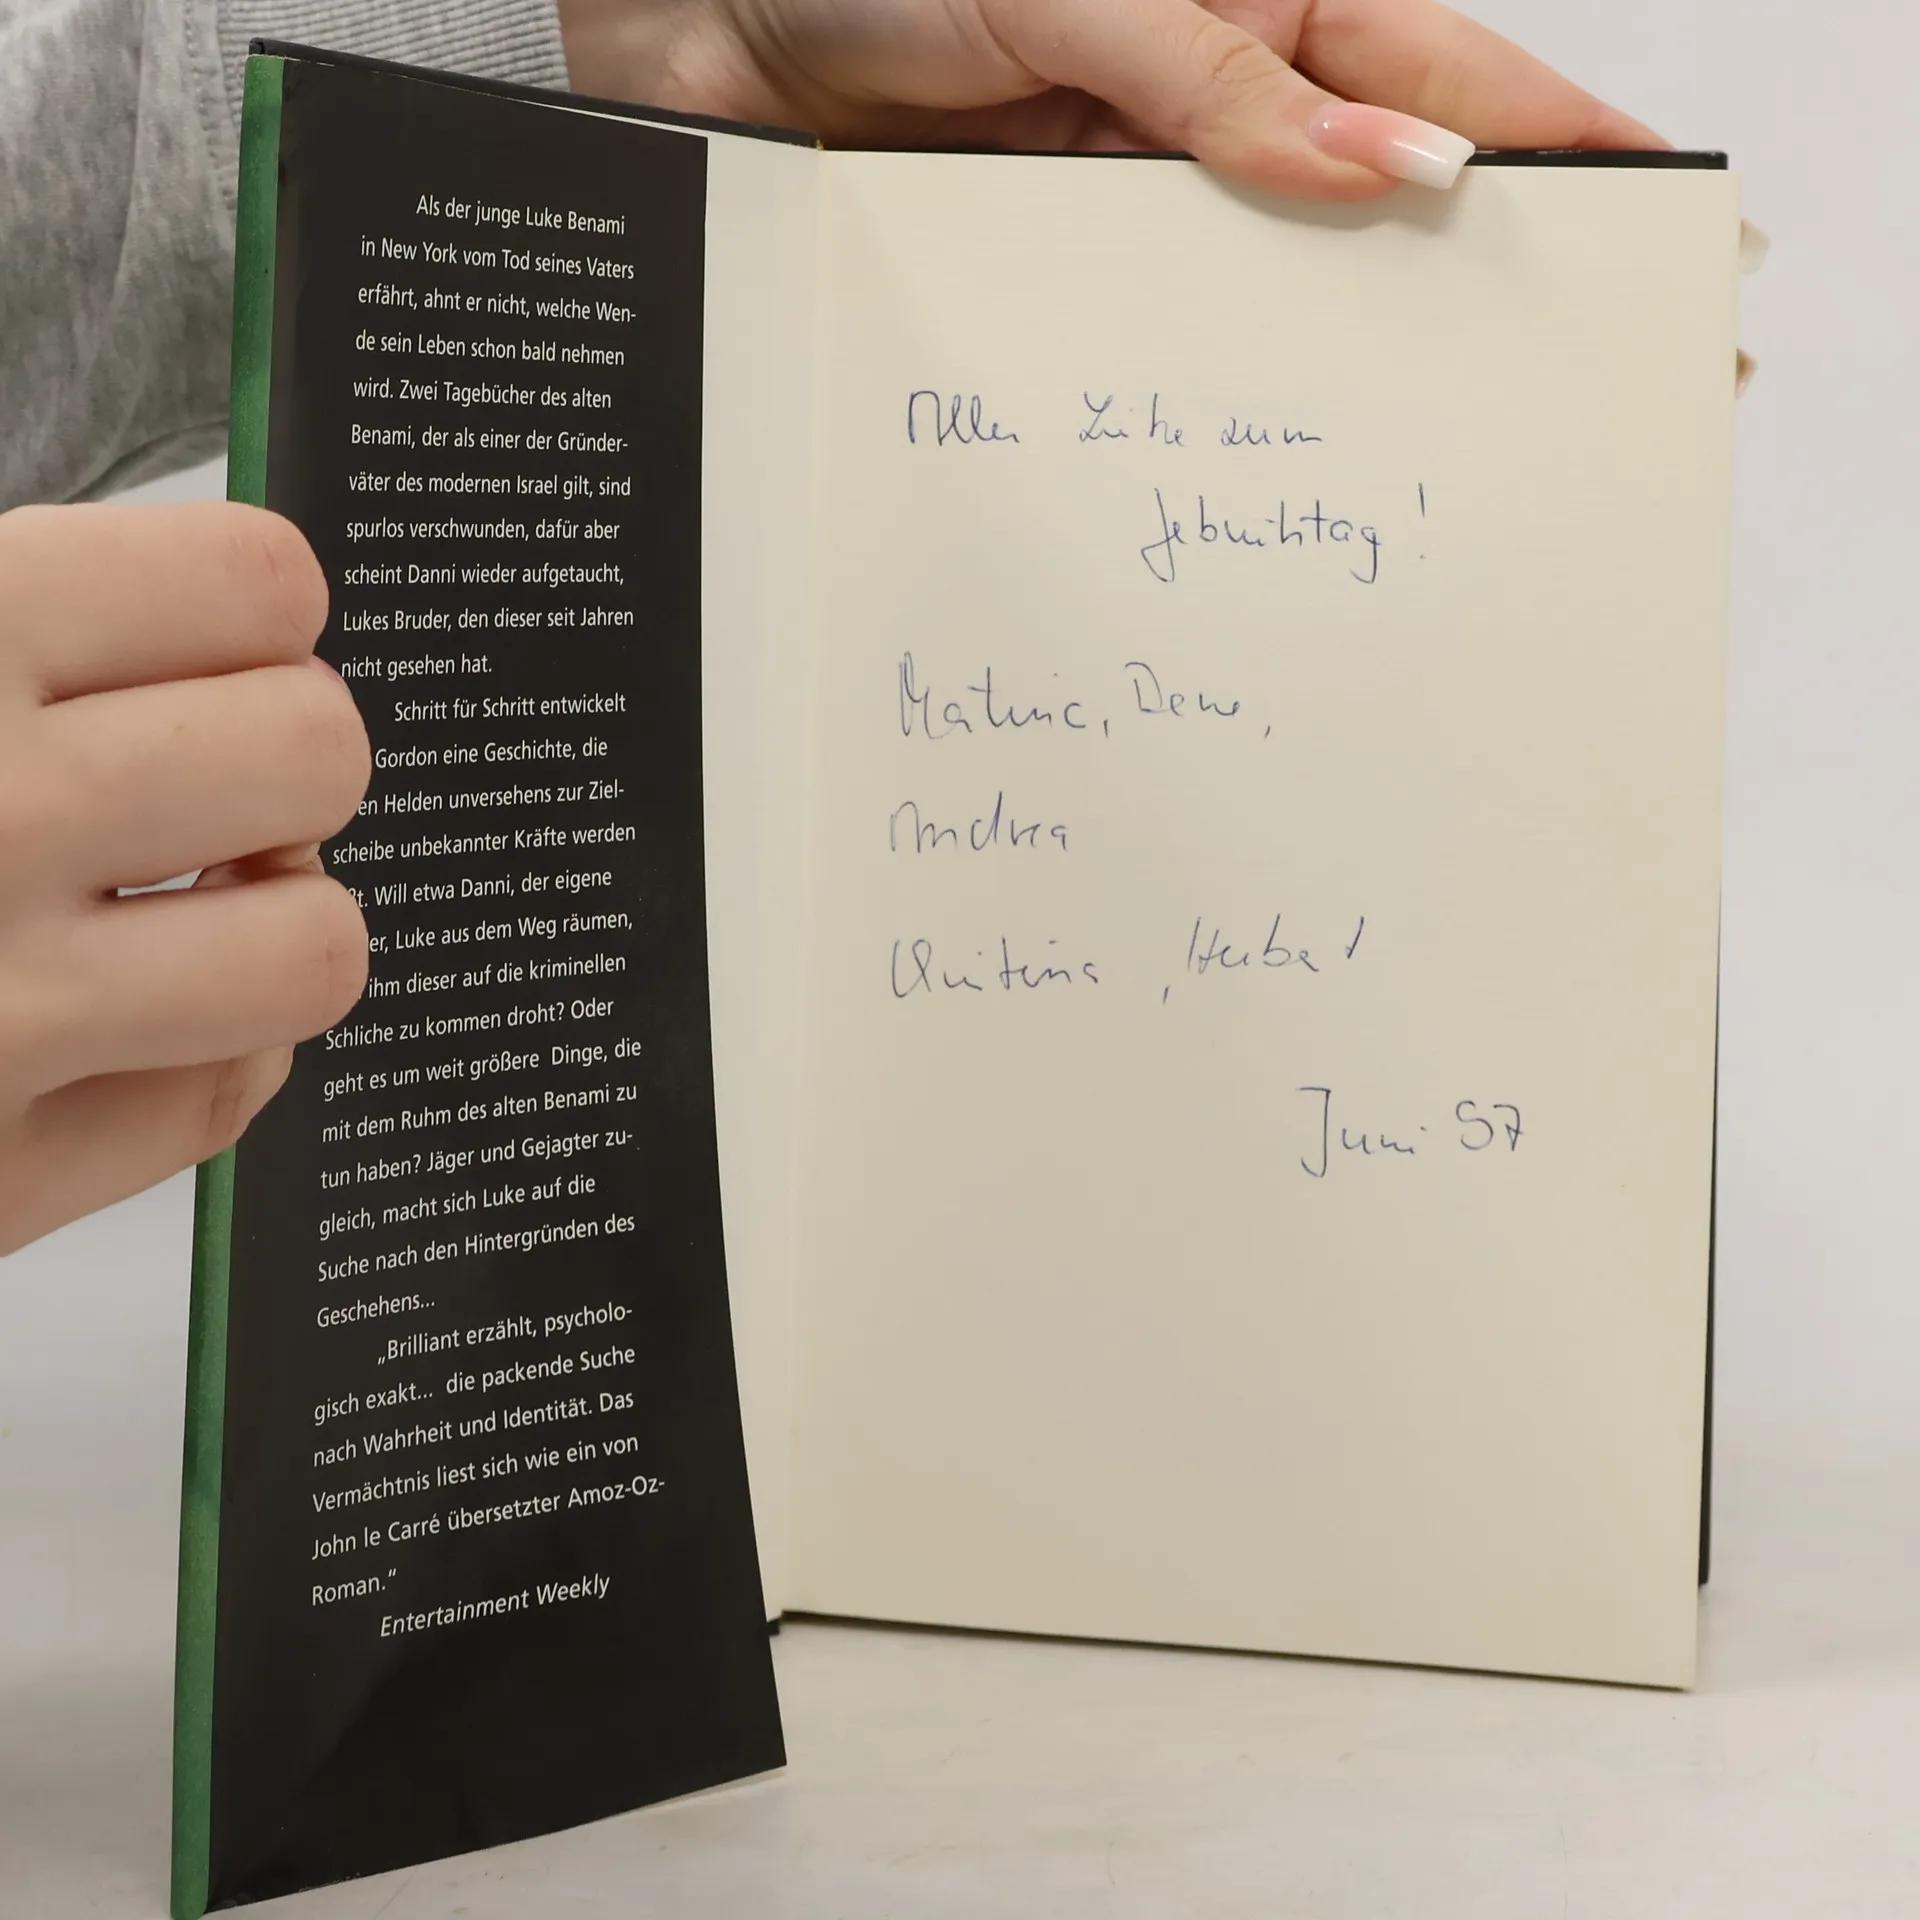 Als der junge Luke Benami
in New York vom Tod seines Vaters
erfährt, ahnt er nicht, welche Wen-
de sein Leben schon bald nehmen
wird. Zwei Tagebücher des alten
Benami, der als einer der Gründer-
väter des modernen Israel gilt, sind
spurlos verschwunden, dafür aber
scheint Danni wieder aufgetaucht,
Lukes Bruder, den dieser seit Jahren
nicht gesehen hat.
Schritt für Schritt entwickelt
Gordon eine Geschichte, die
en Helden unversehens zur Ziel-
scheibe unbekannter Kräfte werden
ßt. Will etwa Danni, der eigene
er, Luke aus dem Weg räumen,
ihm dieser auf die kriminellen
Schliche zu kommen droht? Oder
geht es um weit größere Dinge, die
mit dem Ruhm des alten Benami zu
tun haben? Jäger und Gejagter zu-
gleich, macht sich Luke auf die
Suche nach den Hintergründen des
Geschehens...
„Brilliant erzählt, psycholo-
gisch exakt... die packende Suche
nach Wahrheit und Identität. Das
Vermächtnis liest sich wie ein von
John le Carré übersetzter Amoz-Oz-
Roman.“
Entertainment Weekly
Alles Liebe zum
Geburtstag!
Andrea
Christina, Herbert
Juni 97